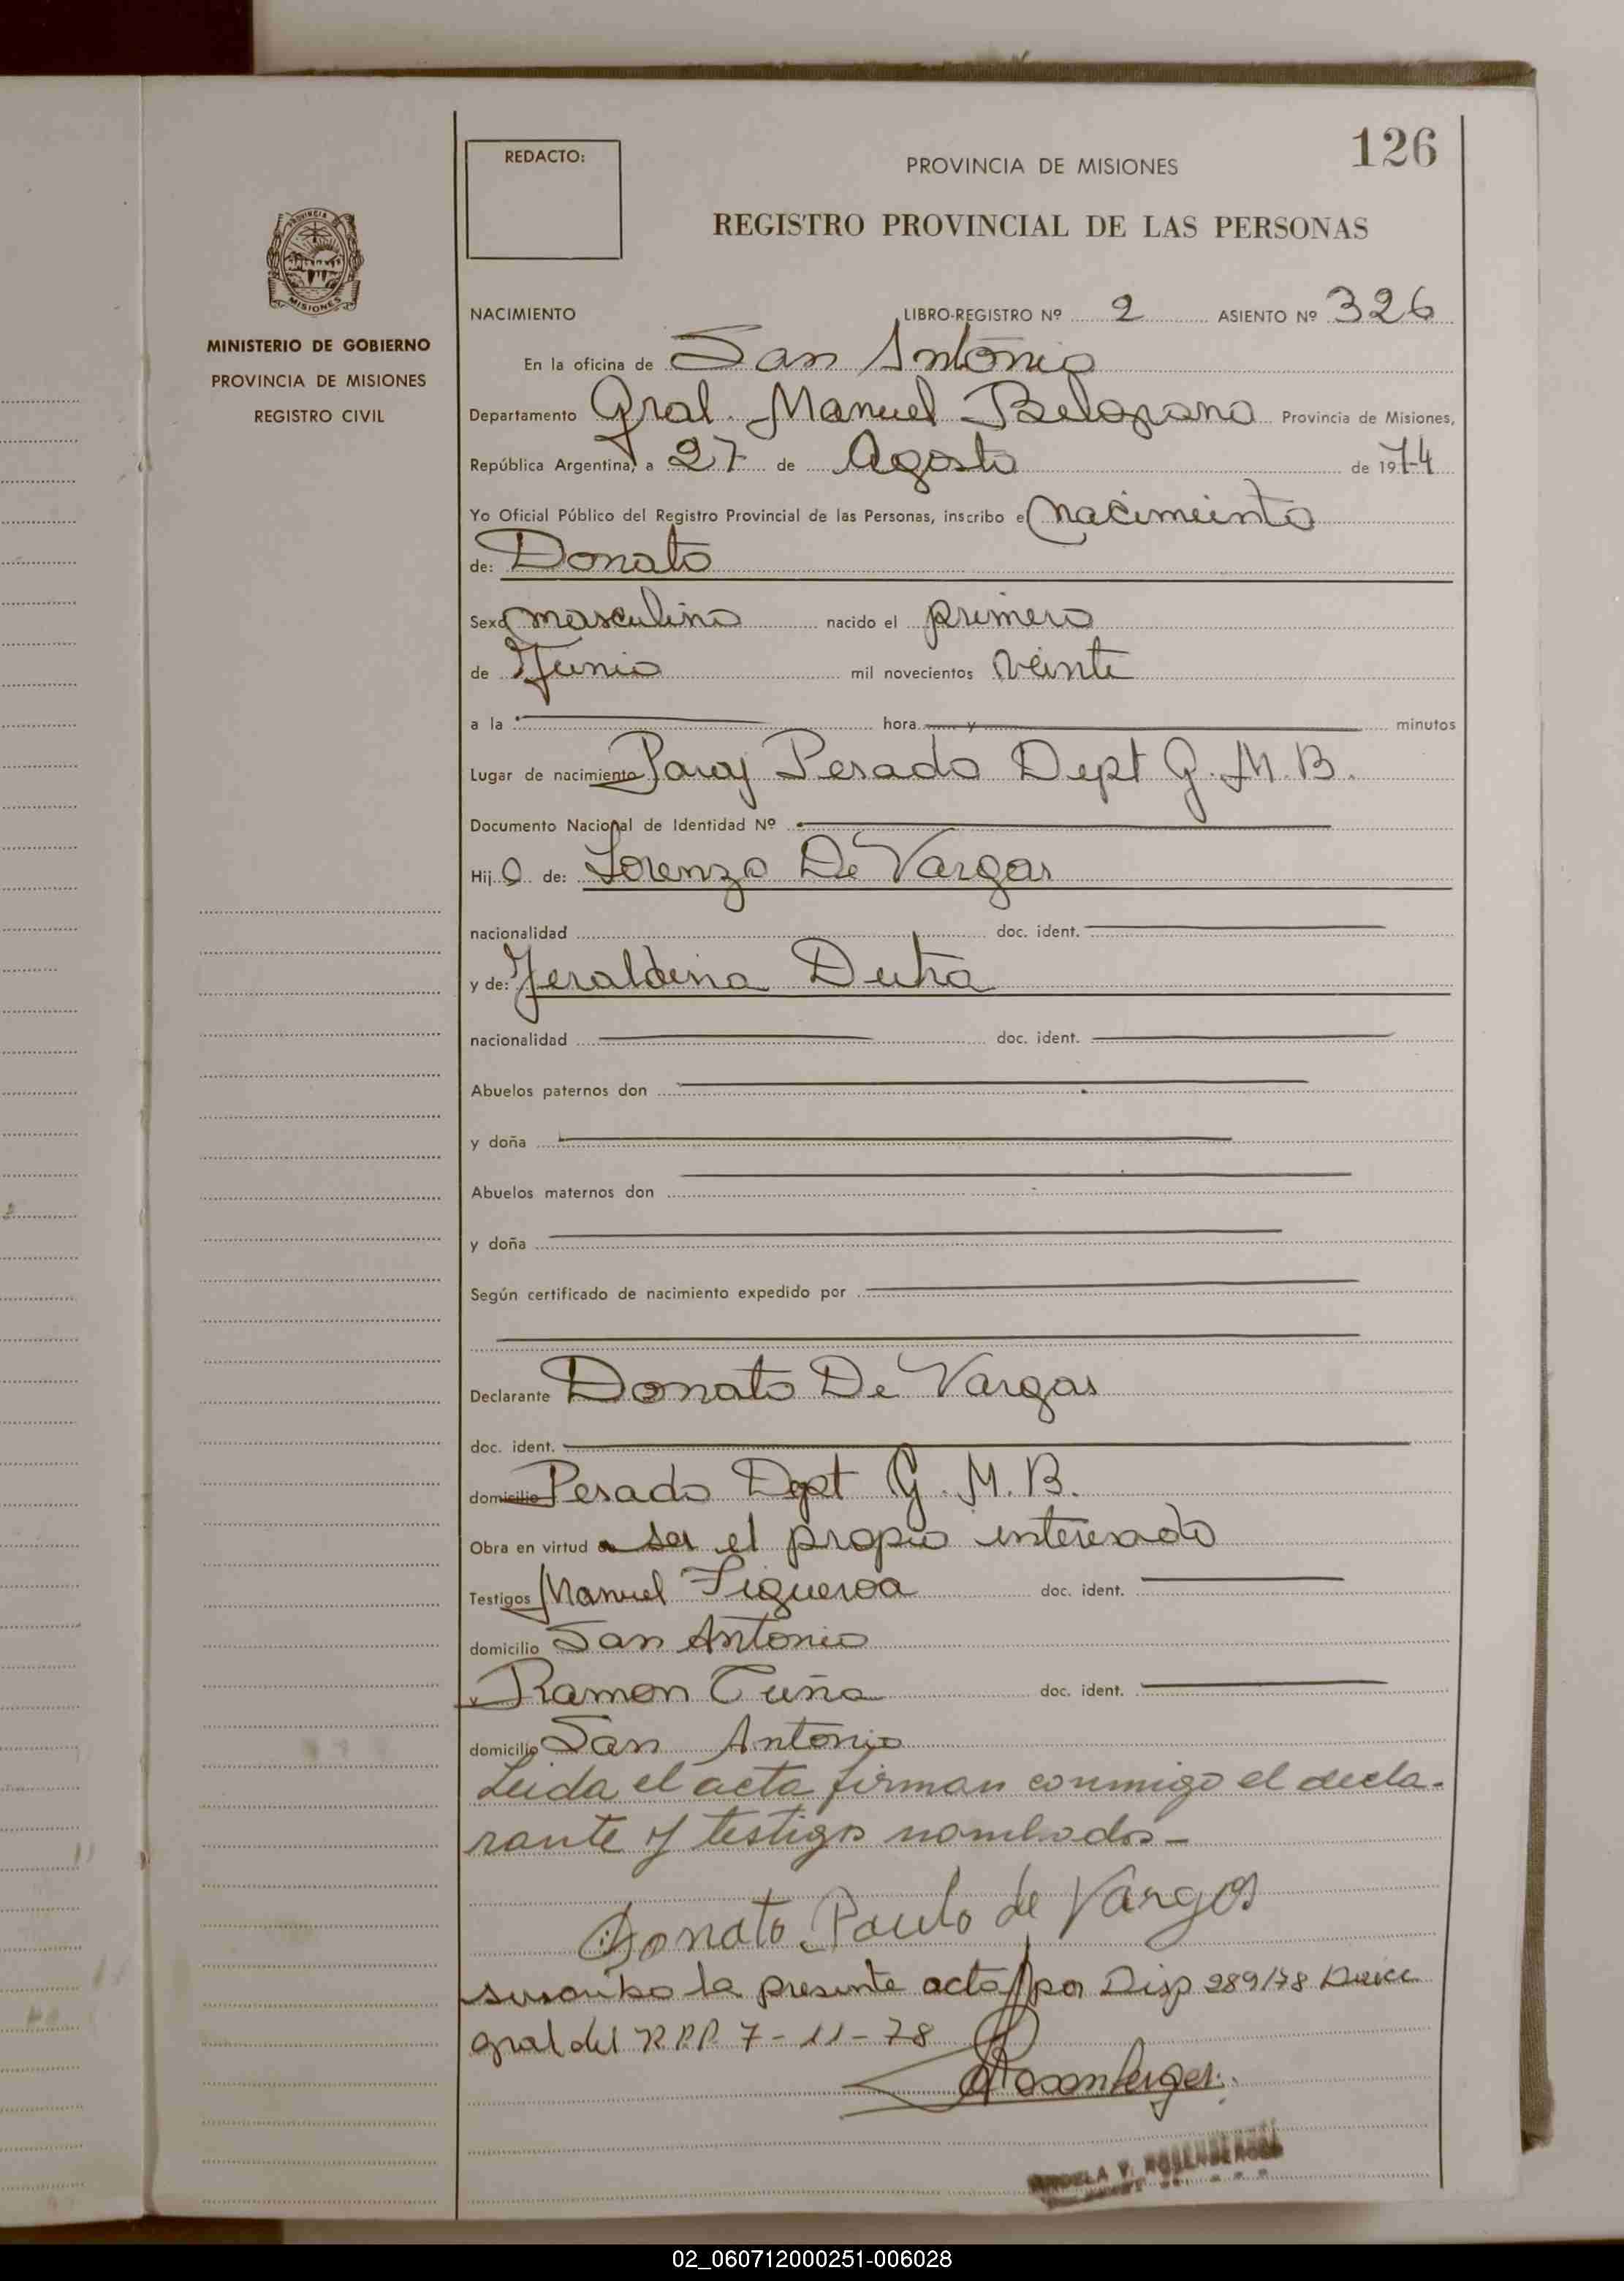 126
REDACTO:
PROVINCIA DE MISIONES
REGISTRO PROVINCIAL DE LAS PERSONAS
PROVINCIA DE
MISIONES
MINISTERIO DE GOBIERNO
PROVINCIA DE MISIONES
REGISTRO CIVIL
NACIMIENTO LIBRO-REGISTRO Nº 2 ASIENTO Nº 326
En la oficina de San Antonio
Departamento Gral. Manuel Belgrano Provincia de Misiones,
República Argentina, a 27 de Agosto de 1974
Yo Oficial Público del Registro Provincial de las Personas, inscribo el nacimiento
de: Donato
Sexo masculino nacido el primero
de Junio mil novecientos veinte
a la hora y minutos
Lugar de nacimiento Paraj Pesado Dept G. M. B.
Documento Nacional de Identidad Nº
Hijo de: Lorenzo De Vargas
nacionalidad doc. ident.
y de: Jeraldina Dutra
nacionalidad doc. ident.
Abuelos paternos don
y doña
Abuelos maternos don
y doña
Según certificado de nacimiento expedido por
Declarante Donato De Vargas
doc. ident.
domicilio Pesado Dept G. M. B.
Obra en virtud de ser el propio interesado
Testigos Manuel Figueroa doc. ident.
domicilio San Antonio
y Ramon Cuña doc. ident.
domicilio San Antonio
Leida el acta firman conmigo el decla-
rante y testigos nombrados-
Donato Paulo de Vargas
suscribo la presente acta por Disp 289/78 Direcc
gral del R.P.P. 7-11-78
Rosenberger
V. ROSENBERGER
02_060712000251-006028